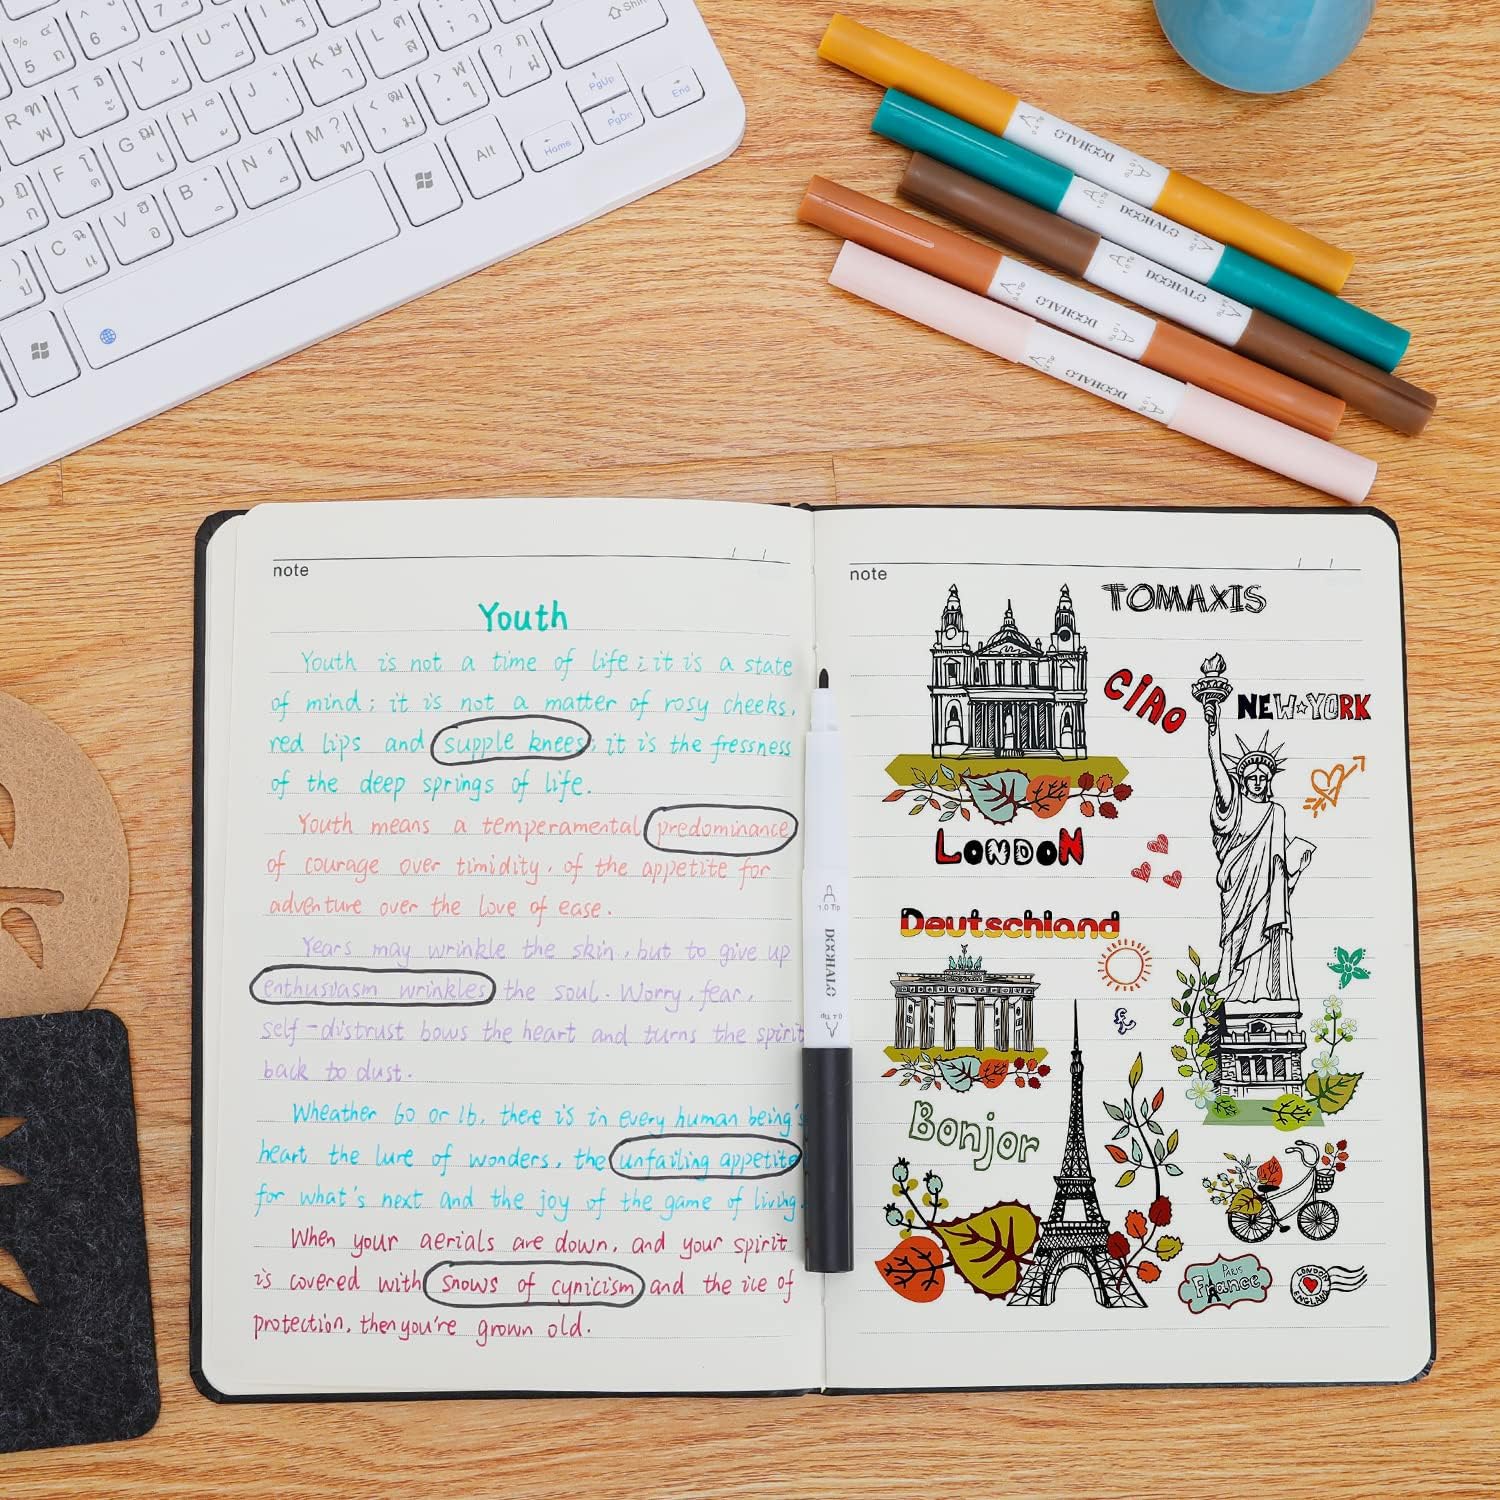 Shift
5
6
PgUp
End
R
T
Y
U
I
PgDn
Home
G
H
J
K
L
F
M
N
B
V
C
Alt
DOOHALO
DOOHALO
DOOHALO
DOOHALO
DOOHALO
note
Youth
Youth is not a time of life ; it is a state
of mind ; it is not a matter of rosy cheeks,
red lips and supple knees ; it is the fressness
of the deep springs of life.
Youth means a temperamental predominance
of courage over timidity, of the appetite for
adventure over the love of ease.
Years may wrinkle the skin, but to give up
enthusvasm wrinkles the soul. Worry, fear,
self-distrust bows the heart and turns the spirit
back to dust.
Wheather 60 or 16, there is in every human being's
heart the lure of wonders, the unfailing appetite
for what's next and the joy of the game of living.
When your aerials are down, and your spirit
is covered with snows of cynicism and the ice of
protection, then you're grown old.
1.0 Tip
DOOHALO
0.4 Tip
note
TOMAXIS
CiAO
NEW YORK
LONDON
Deutschland
Bonjor
PARIS
France
LONDON
ENGLAND